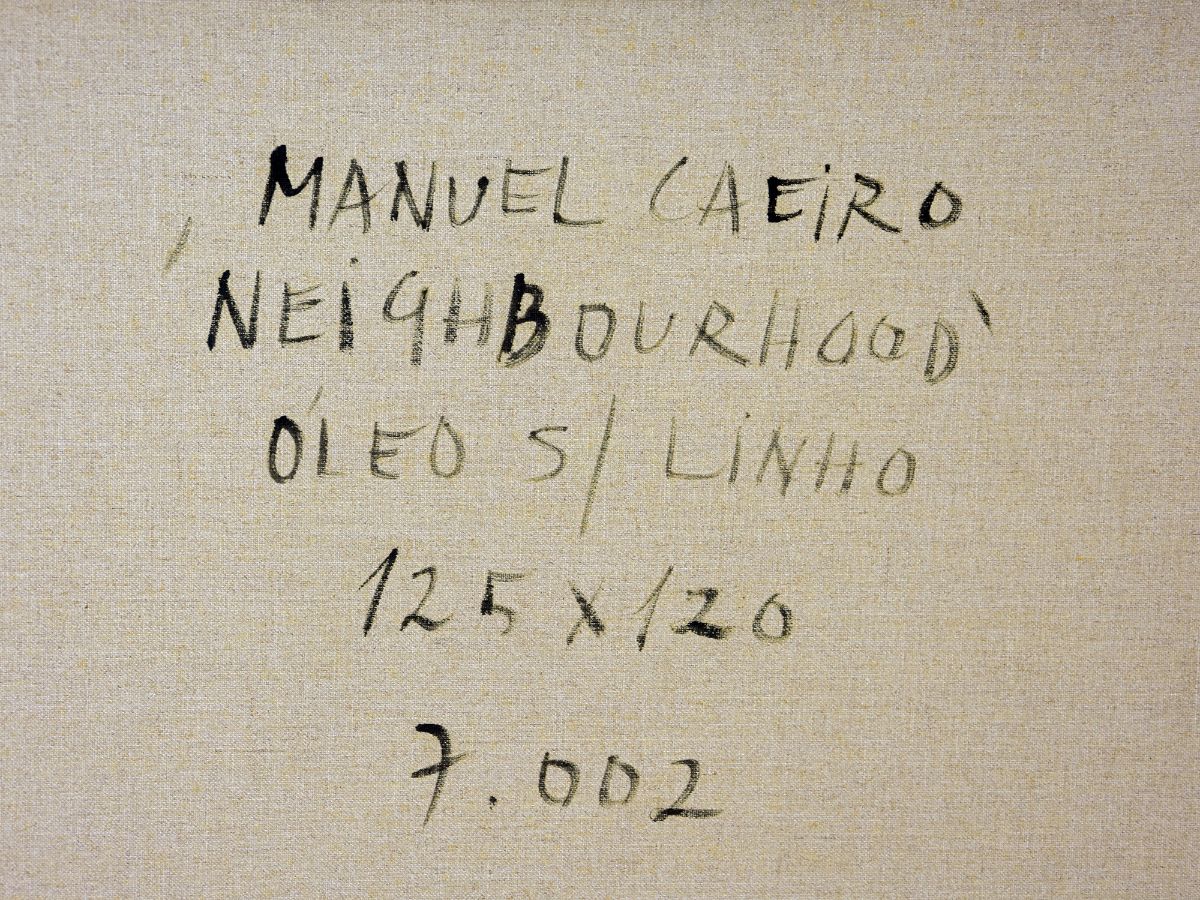 MANUEL CAEIRO
'NEIGHBOURHOOD'
ÓLEO S/ LINHO
125x120
7.002